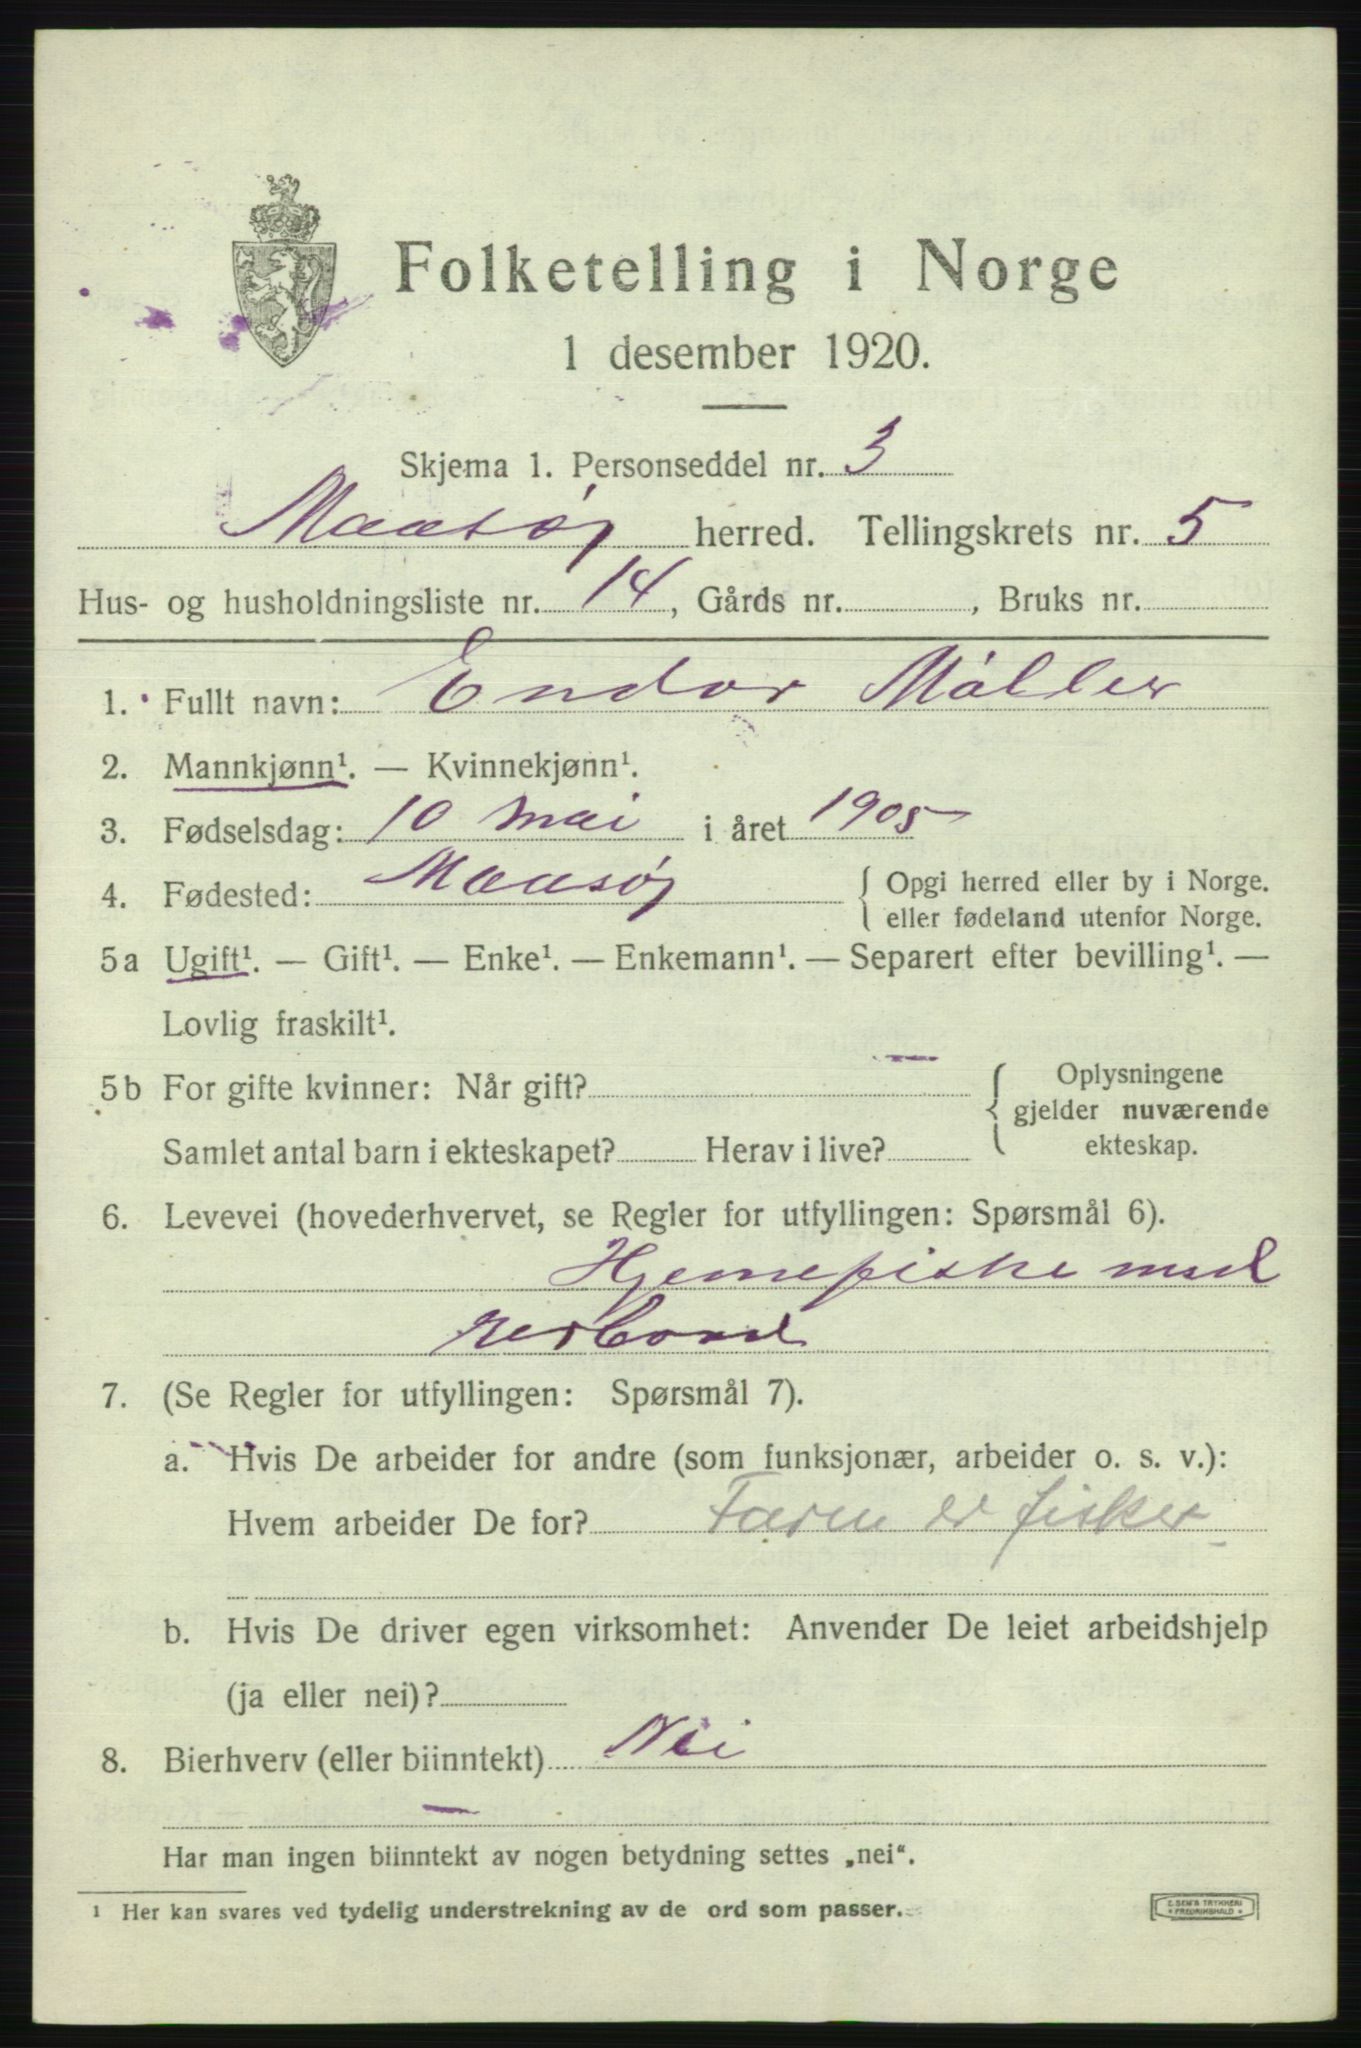 Folketelling i Norge
1 desember 1920.
Skjema 1. Personseddel nr. 3
Maasøy herred. Tellingskrets nr. 5
Hus- og husholdningsliste nr. 14, Gårds nr. , Bruks nr.
1. Fullt navn: Endor Møller
2. Mannkjønn¹. — Kvinnekjønn¹.
3. Fødselsdag: 10 mai i året 1905
4. Fødested: Maasøy { Opgi herred eller by i Norge.
eller fødeland utenfor Norge.
5a Ugift¹. — Gift¹. — Enke¹. — Enkemann¹. — Separert efter bevilling¹. —
Lovlig fraskilt¹.
5b For gifte kvinner: Når gift? — { Oplysningene
gjelder nuværende
ekteskap.
Samlet antal barn i ekteskapet? Herav i live?
6. Levevei (hovederhvervet, se Regler for utfyllingen: Spørsmål 6).
Hjemefiske med
7. (Se Regler for utfyllingen: Spørsmål 7).
a. Hvis De arbeider for andre (som funksjonær, arbeider o. s. v.):
Hvem arbeider De for? Faren er fisker
b. Hvis De driver egen virksomhet: Anvender De leiet arbeidshjelp
(ja eller nei)?
8. Bierhverv (eller biinntekt) Nei
—
Har man ingen biinntekt av nogen betydning settes „nei".
¹ Her kan svares ved tydelig understrekning av de ord som passer.
E. SEM'S TRYKKERI
FREDRIKSHALD